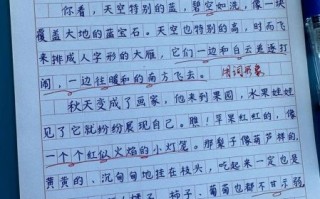 你看，天空特别的蓝，碧空如洗，像一块
覆盖大地的蓝宝石。天空也特别的高，时而飞
来排成人字形的大雁，它们一边和白云追逐打
闹，一边往暖和的南方飞去。 用词形象
秋天变成了画家，他来到果园，水果娃娃
见了它就纷纷展现自己。瞧！苹果红红的，像
一个个红似火焰的小灯笼。那梨子像葫芦样的
黄黄的、沉甸甸地挂在枝头，吃起来一定也是
柿子、葡萄也都不甘示弱